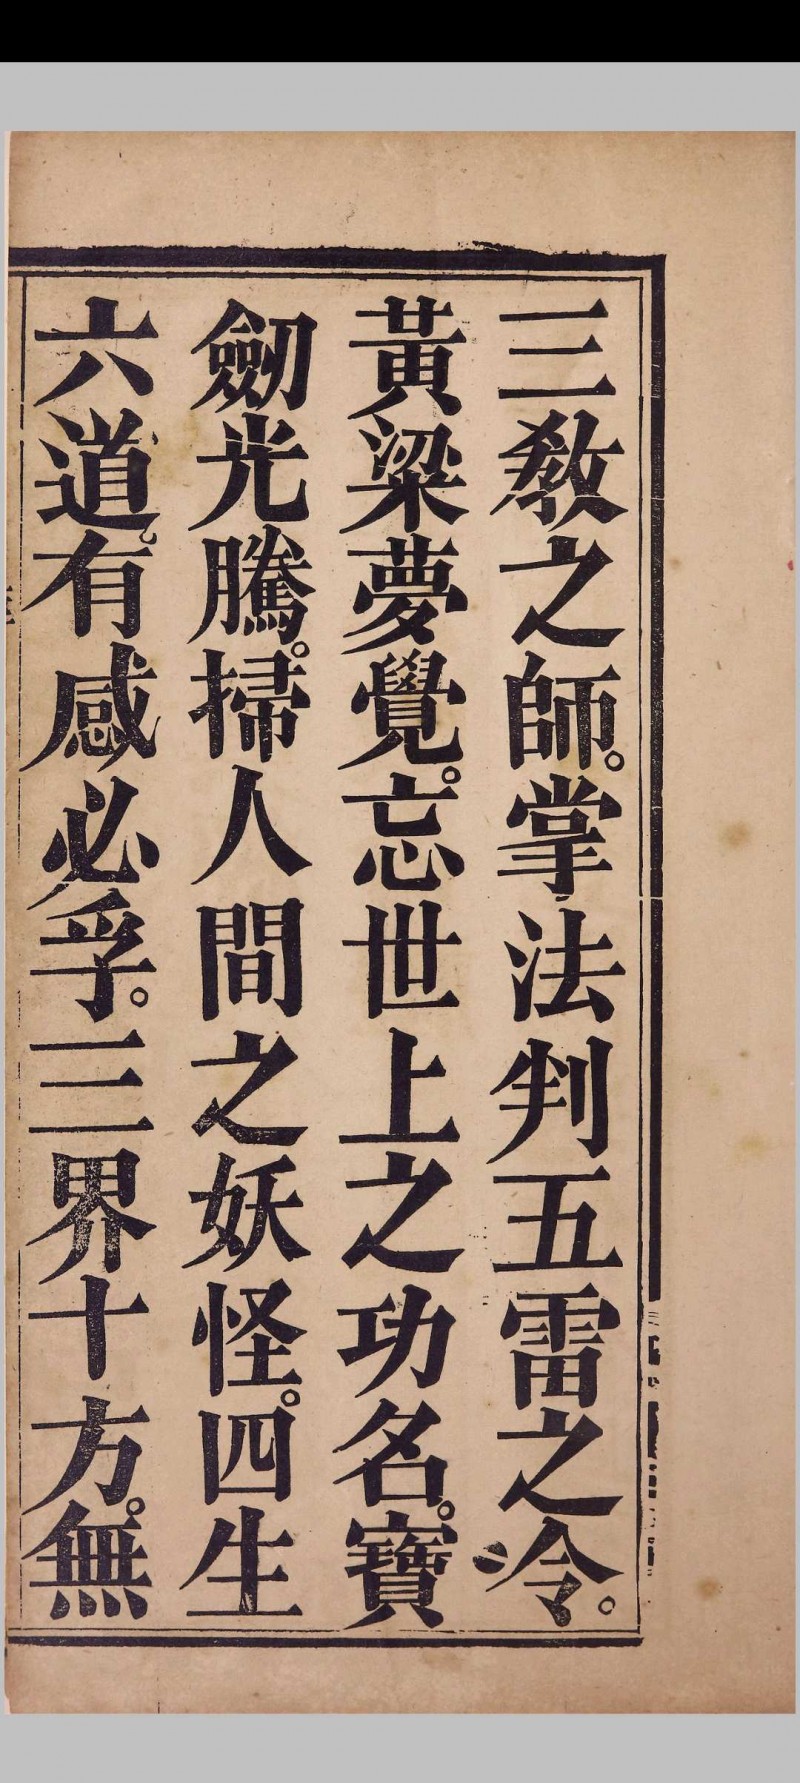 三教之師。掌法判五雷之冷。
黃梁夢覺。忘世上之功名。寶
劒光騰。掃人間之妖怪。四生
六道。有感必孚。三界十方。無